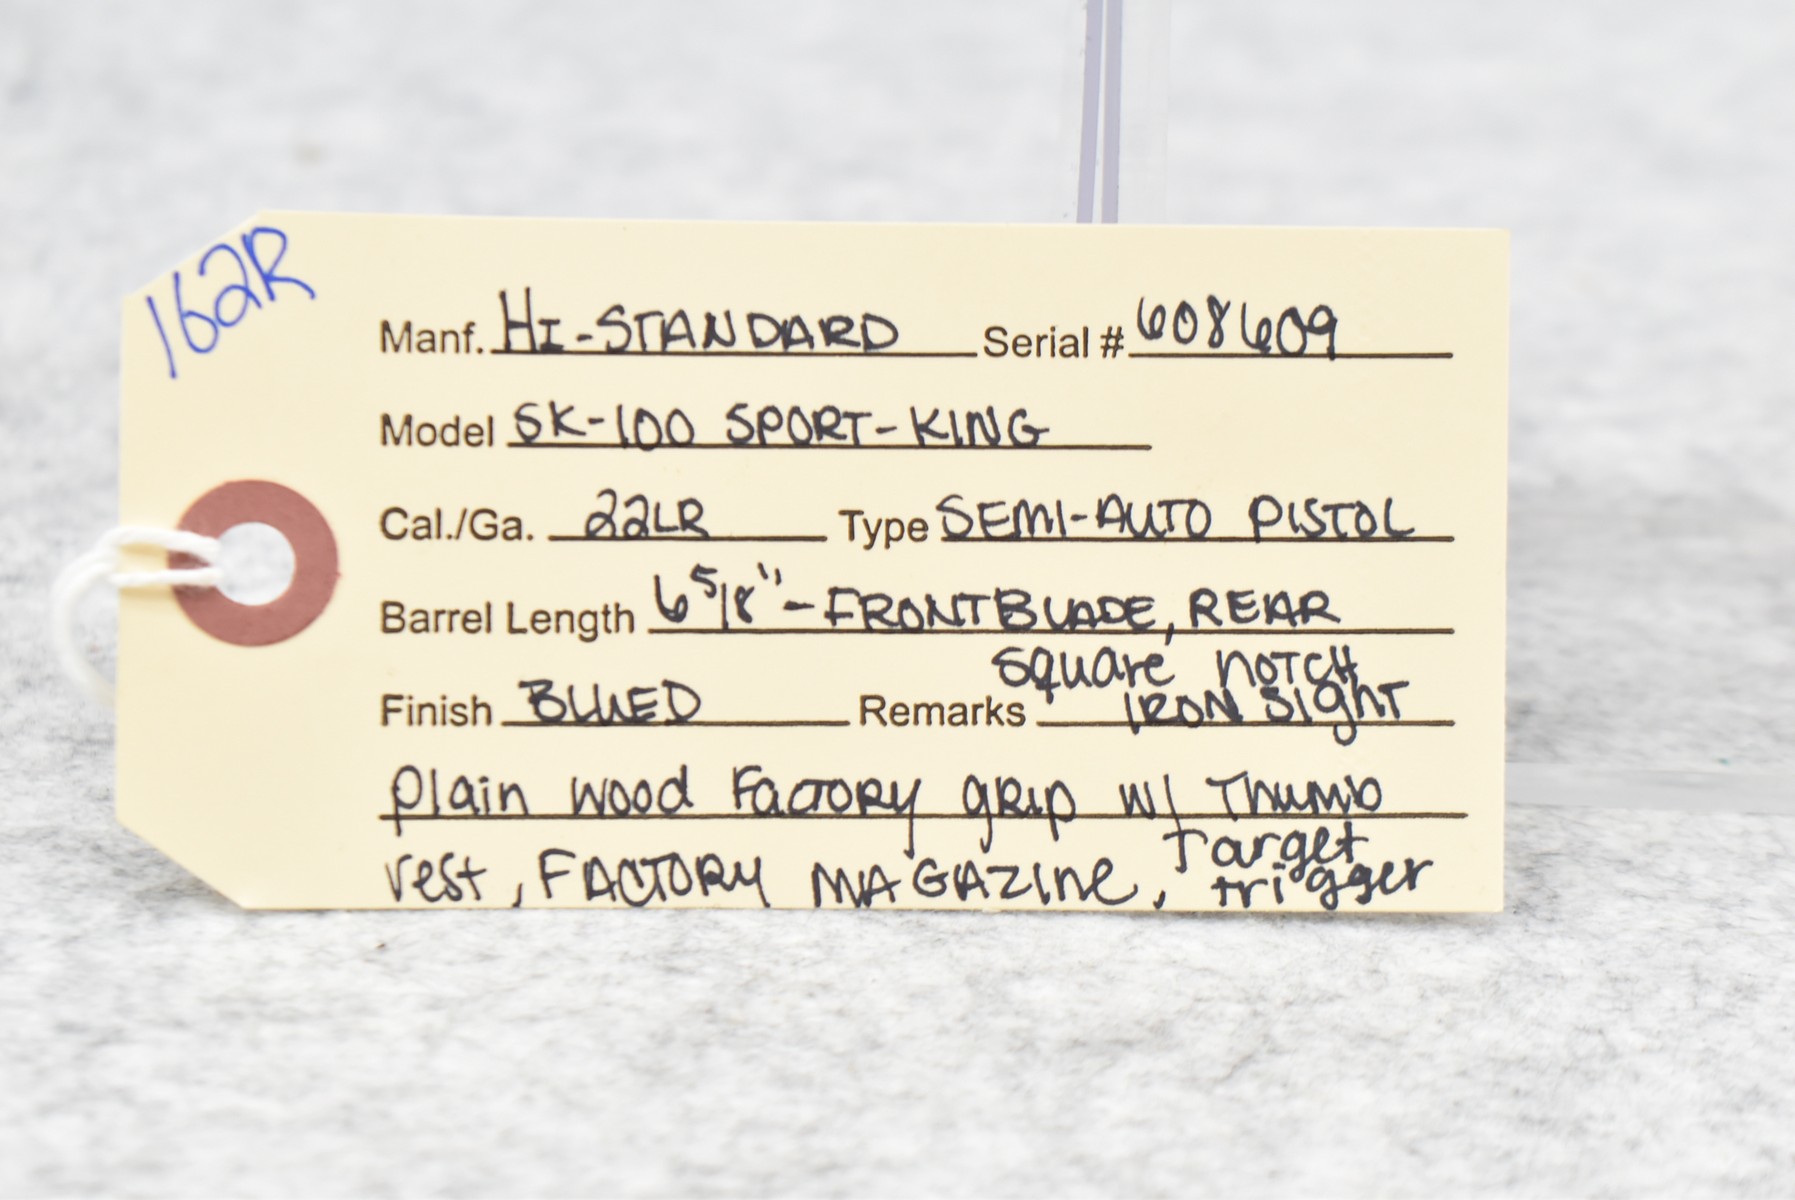 162R
Manf. HI-STANDARD Serial # 608609
Model SK-100 SPORT-KING
Cal./Ga. 22LR Type SEMI-AUTO PISTOL
Barrel Length 6 5/8" - FRONT BLADE, REAR
square NOTCH
Finish BLUED Remarks IRON Sight
plain wood Factory grip w/ Thumb
rest, FACTORY MAGAZine, Target
trigger